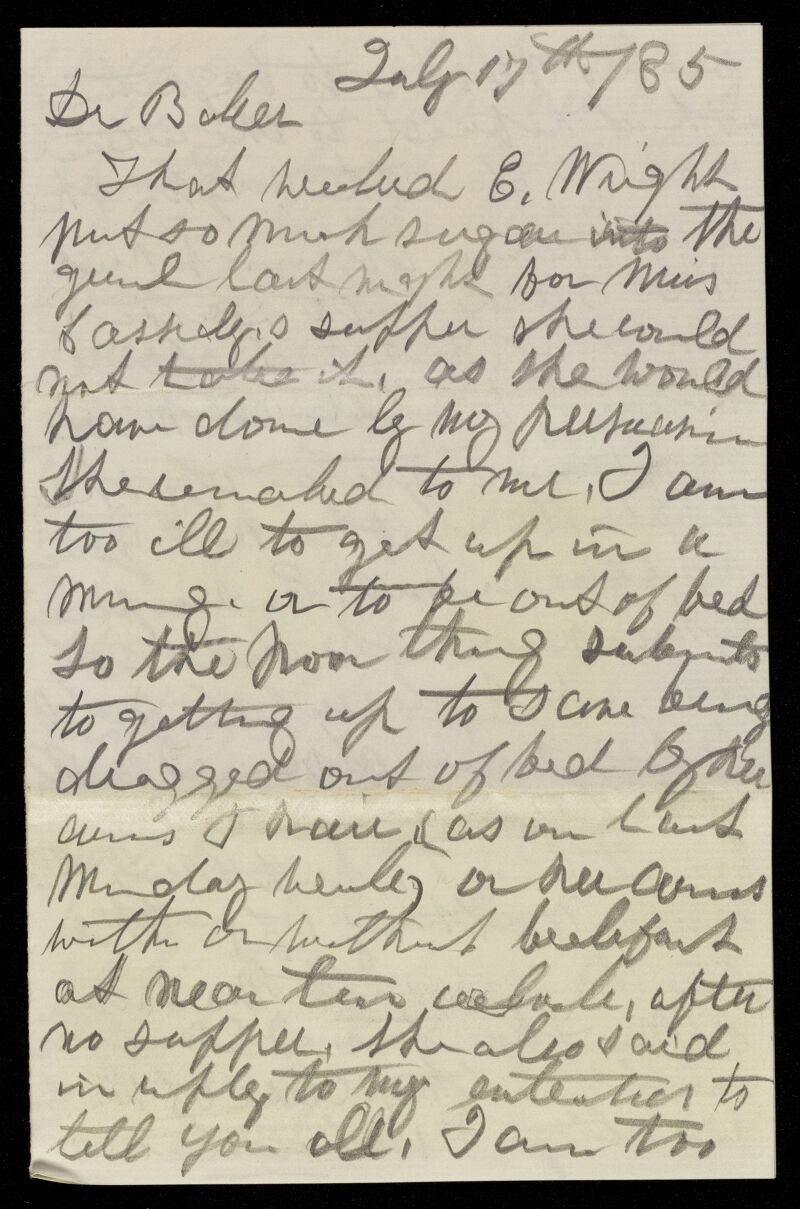 July 17th /85
Dr Baker
That wicked E. Wright
put so much sugar into the
gruel last night for Miss
Cassidy,s supper she could
not take it, as she would
have done by my persuasion
She remarked to me, I am
too ill to get up in a
morng. or to be out of bed
So the poor thing submits
to getting up to save being
dragged out of bed by her
arms & hair (as on last
Monday week) or her arms
with or without breakfast
at near two oclock, after
no supper, She also said
in reply to my entreaties to
tell you all, I am too